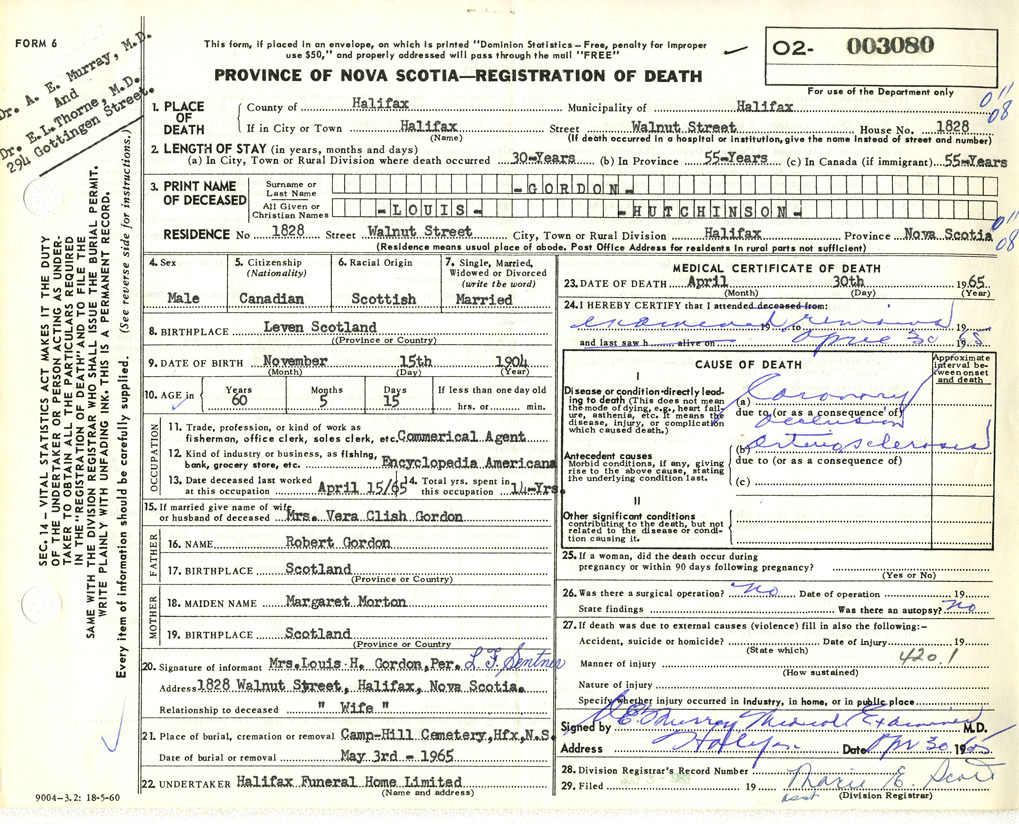 FORM 6
This form, if placed in an envelope, on which is printed "Dominion Statistics – Free, penalty for improper
use $50," and properly addressed will pass through the mail "FREE"
PROVINCE OF NOVA SCOTIA—REGISTRATION OF DEATH
O2- 003080
For use of the Department only
Dr. A. E. Murray, M.D.
And
Dr. E.L. Thorne, M.D.
294 Gottingen Street.
SEC. 14 – VITAL STATISTICS ACT MAKES IT THE DUTY
OF THE UNDERTAKER OR PERSON ACTING AS UNDER-
TAKER TO OBTAIN ALL THE PARTICULARS REQUIRED
IN THE "REGISTRATION OF DEATH" AND TO FILE THE
SAME WITH THE DIVISION REGISTRAR WHO SHALL ISSUE THE BURIAL PERMIT.
WRITE PLAINLY WITH UNFADING INK. THIS IS A PERMANENT RECORD.
Every item of information should be carefully supplied. (See reverse side for instructions.)
1. PLACE OF DEATH
County of Halifax Municipality of Halifax
011
08
If in City or Town Halifax Street Walnut Street House No. 1828
(Name) (If death occurred in a hospital or institution, give the name instead of street and number)
2. LENGTH OF STAY (in years, months and days)
(a) In City, Town or Rural Division where death occurred 30-Years (b) In Province 55-Years (c) In Canada (if immigrant) 55-Years
3. PRINT NAME OF DECEASED
Surname or Last Name -GORDON-
All Given or Christian Names -LOUIS- -HUTCHINSON-
RESIDENCE No 1828 Street Walnut Street City, Town or Rural Division Halifax Province Nova Scotia
011
08
(Residence means usual place of abode. Post Office Address for residents in rural parts not sufficient)
4. Sex
Male
5. Citizenship
(Nationality)
Canadian
6. Racial Origin
Scottish
7. Single, Married,
Widowed or Divorced
(write the word)
Married
8. BIRTHPLACE Leven Scotland
((Province or Country)
9. DATE OF BIRTH November 15th 1904
(Month) (Day) (Year)
10. AGE in
Years Months Days If less than one day old
60 5 15 hrs. or min.
OCCUPATION
11. Trade, profession, or kind of work as
fisherman, office clerk, sales clerk, etc. Commerical Agent
12. Kind of industry or business, as fishing,
bank, grocery store, etc. Encyclopedia Americana
13. Date deceased last worked
at this occupation April 15/65
14. Total yrs. spent in
this occupation 14-Yrs.
15. If married give name of wife
or husband of deceased Mrs. Vera Clish Gordon
FATHER
16. NAME Robert Gordon
17. BIRTHPLACE Scotland
(Province or Country)
MOTHER
18. MAIDEN NAME Margaret Morton
19. BIRTHPLACE Scotland
(Province or Country)
20. Signature of informant Mrs.Louis H. Gordon,Per. L F Sentner
Address 1828 Walnut Street, Halifax, Nova Scotia.
Relationship to deceased " Wife "
21. Place of burial, cremation or removal Camp-Hill Cemetery,Hfx,N.S.
Date of burial or removal May 3rd - 1965
22. UNDERTAKER Halifax Funeral Home Limited
(Name and address)
9004–3.2: 18-5-60
MEDICAL CERTIFICATE OF DEATH
23. DATE OF DEATH April 30th 1965
(Month) (Day) (Year)
24. I HEREBY CERTIFY that I attended deceased from:
examined remains 19 to 19
and last saw h alive on April 30 1965
CAUSE OF DEATH
Approximate
interval be-
tween onset
and death
I
Disease or condition directly lead-
ing to death (This does not mean
the mode of dying, e.g., heart fail-
ure, asthenia, etc. It means the
disease, injury, or complication
which caused death.)
(a) Coronary
due to (or as a consequence of)
occlusion
(b) Arteriosclerosis
due to (or as a consequence of)
(c)
Antecedent causes
Morbid conditions, if any, giving
rise to the above cause, stating
the underlying condition last.
II
Other significant conditions
contributing to the death, but not
related to the disease or condi-
tion causing it.
25. If a woman, did the death occur during
pregnancy or within 90 days following pregnancy?
(Yes or No)
26. Was there a surgical operation? No Date of operation 19
State findings Was there an autopsy? No
27. If death was due to external causes (violence) fill in also the following:–
Accident, suicide or homicide? Date of injury 19
(State which)
420.1
Manner of injury
(How sustained)
Nature of injury
Specify whether injury occurred in Industry, in home, or in public place
Signed by A E Murray Medical Examiner M.D.
Address Halifax Date Apr 30 1965
28. Division Registrar's Record Number
29. Filed 19 Marie E. Scott
asst (Division Registrar)